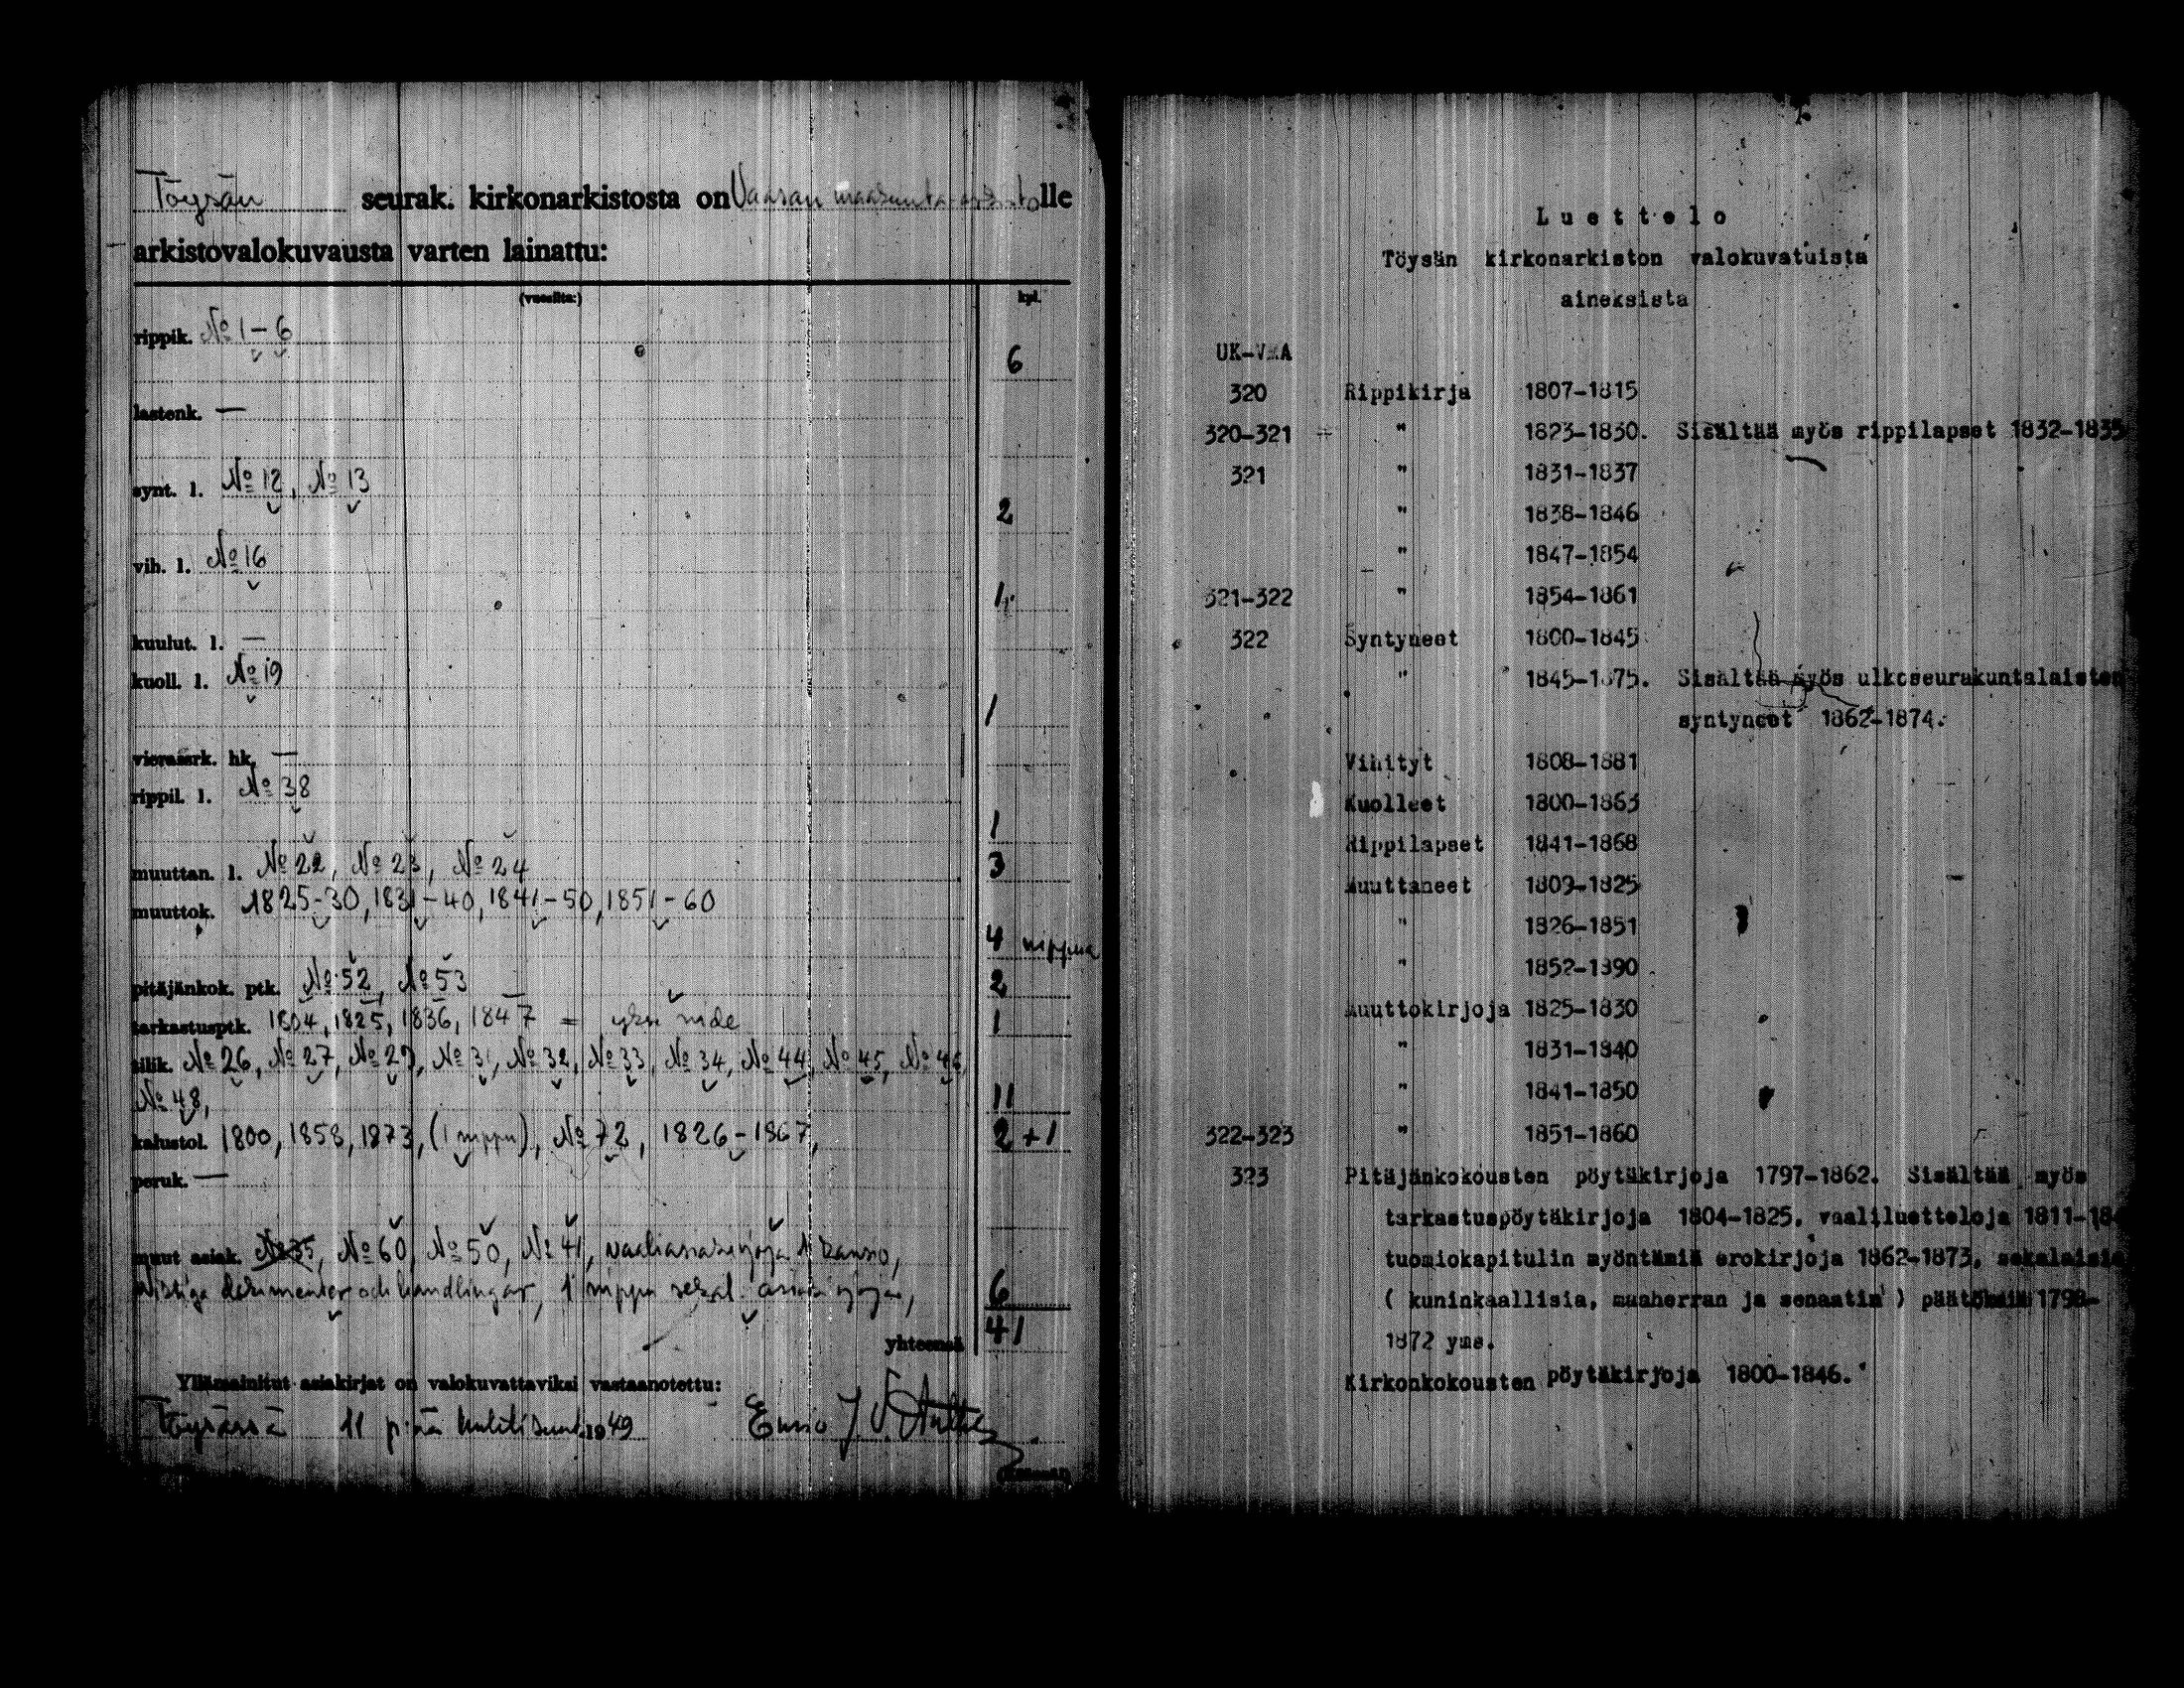 Töysän seurak. kirkonarkistosta on Vaasan maakunta-arkistolle
arkistovalokuvausta varten lainattu:
(vuosilta:) kpl.
rippik. № 1-6
6
lastenk. —
synt. l. № 12, № 13
2
vih. l. № 16
1
kuulut. l. —
kuoll. l. № 19
1
vierassrk. hk. —
rippil. l. № 38
1
muuttan. l. № 22, № 23, № 24 3
muuttok. 1825-30, 1831-40, 1841-50, 1851-60
4 nippua
pitäjänkok. ptk. № 52, № 53 2
tarkastusptk. 1804, 1825, 1836, 1847 = yksi nide 1
tilik. № 26, № 27, № 29, № 31, № 32, № 33, № 34, № 44, № 45, № 46,
№ 48, 11
kalustol. 1800, 1858, 1873, (1 nippu), № 72, 1826-1867, 2+1
peruk. —
muut asiak. № 35, № 60, № 50, № 41, vaaliasiakirjoja 1 kansio,
Wiktiga dokumenter och handlingar, 1 nippu sekal. asiakirjoja, 6
yhteensä 41
Yllämainitut asiakirjat on valokuvattaviksi vastaanotettu:
Töysässä 11 p:nä huhtikuuta 1949 Ensio J.
Luettelo
Töysän kirkonarkiston valokuvatuista
aineksista
UK-VMA
320 Rippikirja 1807-1815
320-321 = " 1823-1830. Sisältää myös rippilapset 1832-1835
321 " 1831-1837
" 1838-1846
" 1847-1854
321-322 " 1854-1861
322 Syntyneet 1800-1845
" 1845-1875. Sisältää myös ulkoseurakuntalaisten
syntyneet 1862-1874.
Vihityt 1808-1881
Kuolleet 1800-1863
Rippilapset 1841-1868
Muuttaneet 1809-1825
" 1826-1851
" 1852-1890
Muuttokirjoja 1825-1830
" 1831-1840
" 1841-1850
322-323 " 1851-1860
323 Pitäjänkokousten pöytäkirjoja 1797-1862. Sisältää myös
tarkastuspöytäkirjoja 1804-1825, vaaliluetteloja 1811-18
tuomiokapitulin myöntämiä erokirjoja 1862-1873, sekalaisia
( kuninkaallisia, maaherran ja senaatin ) päätöksiä 1798-
1872 yms.
Kirkonkokousten pöytäkirjoja 1800-1846.